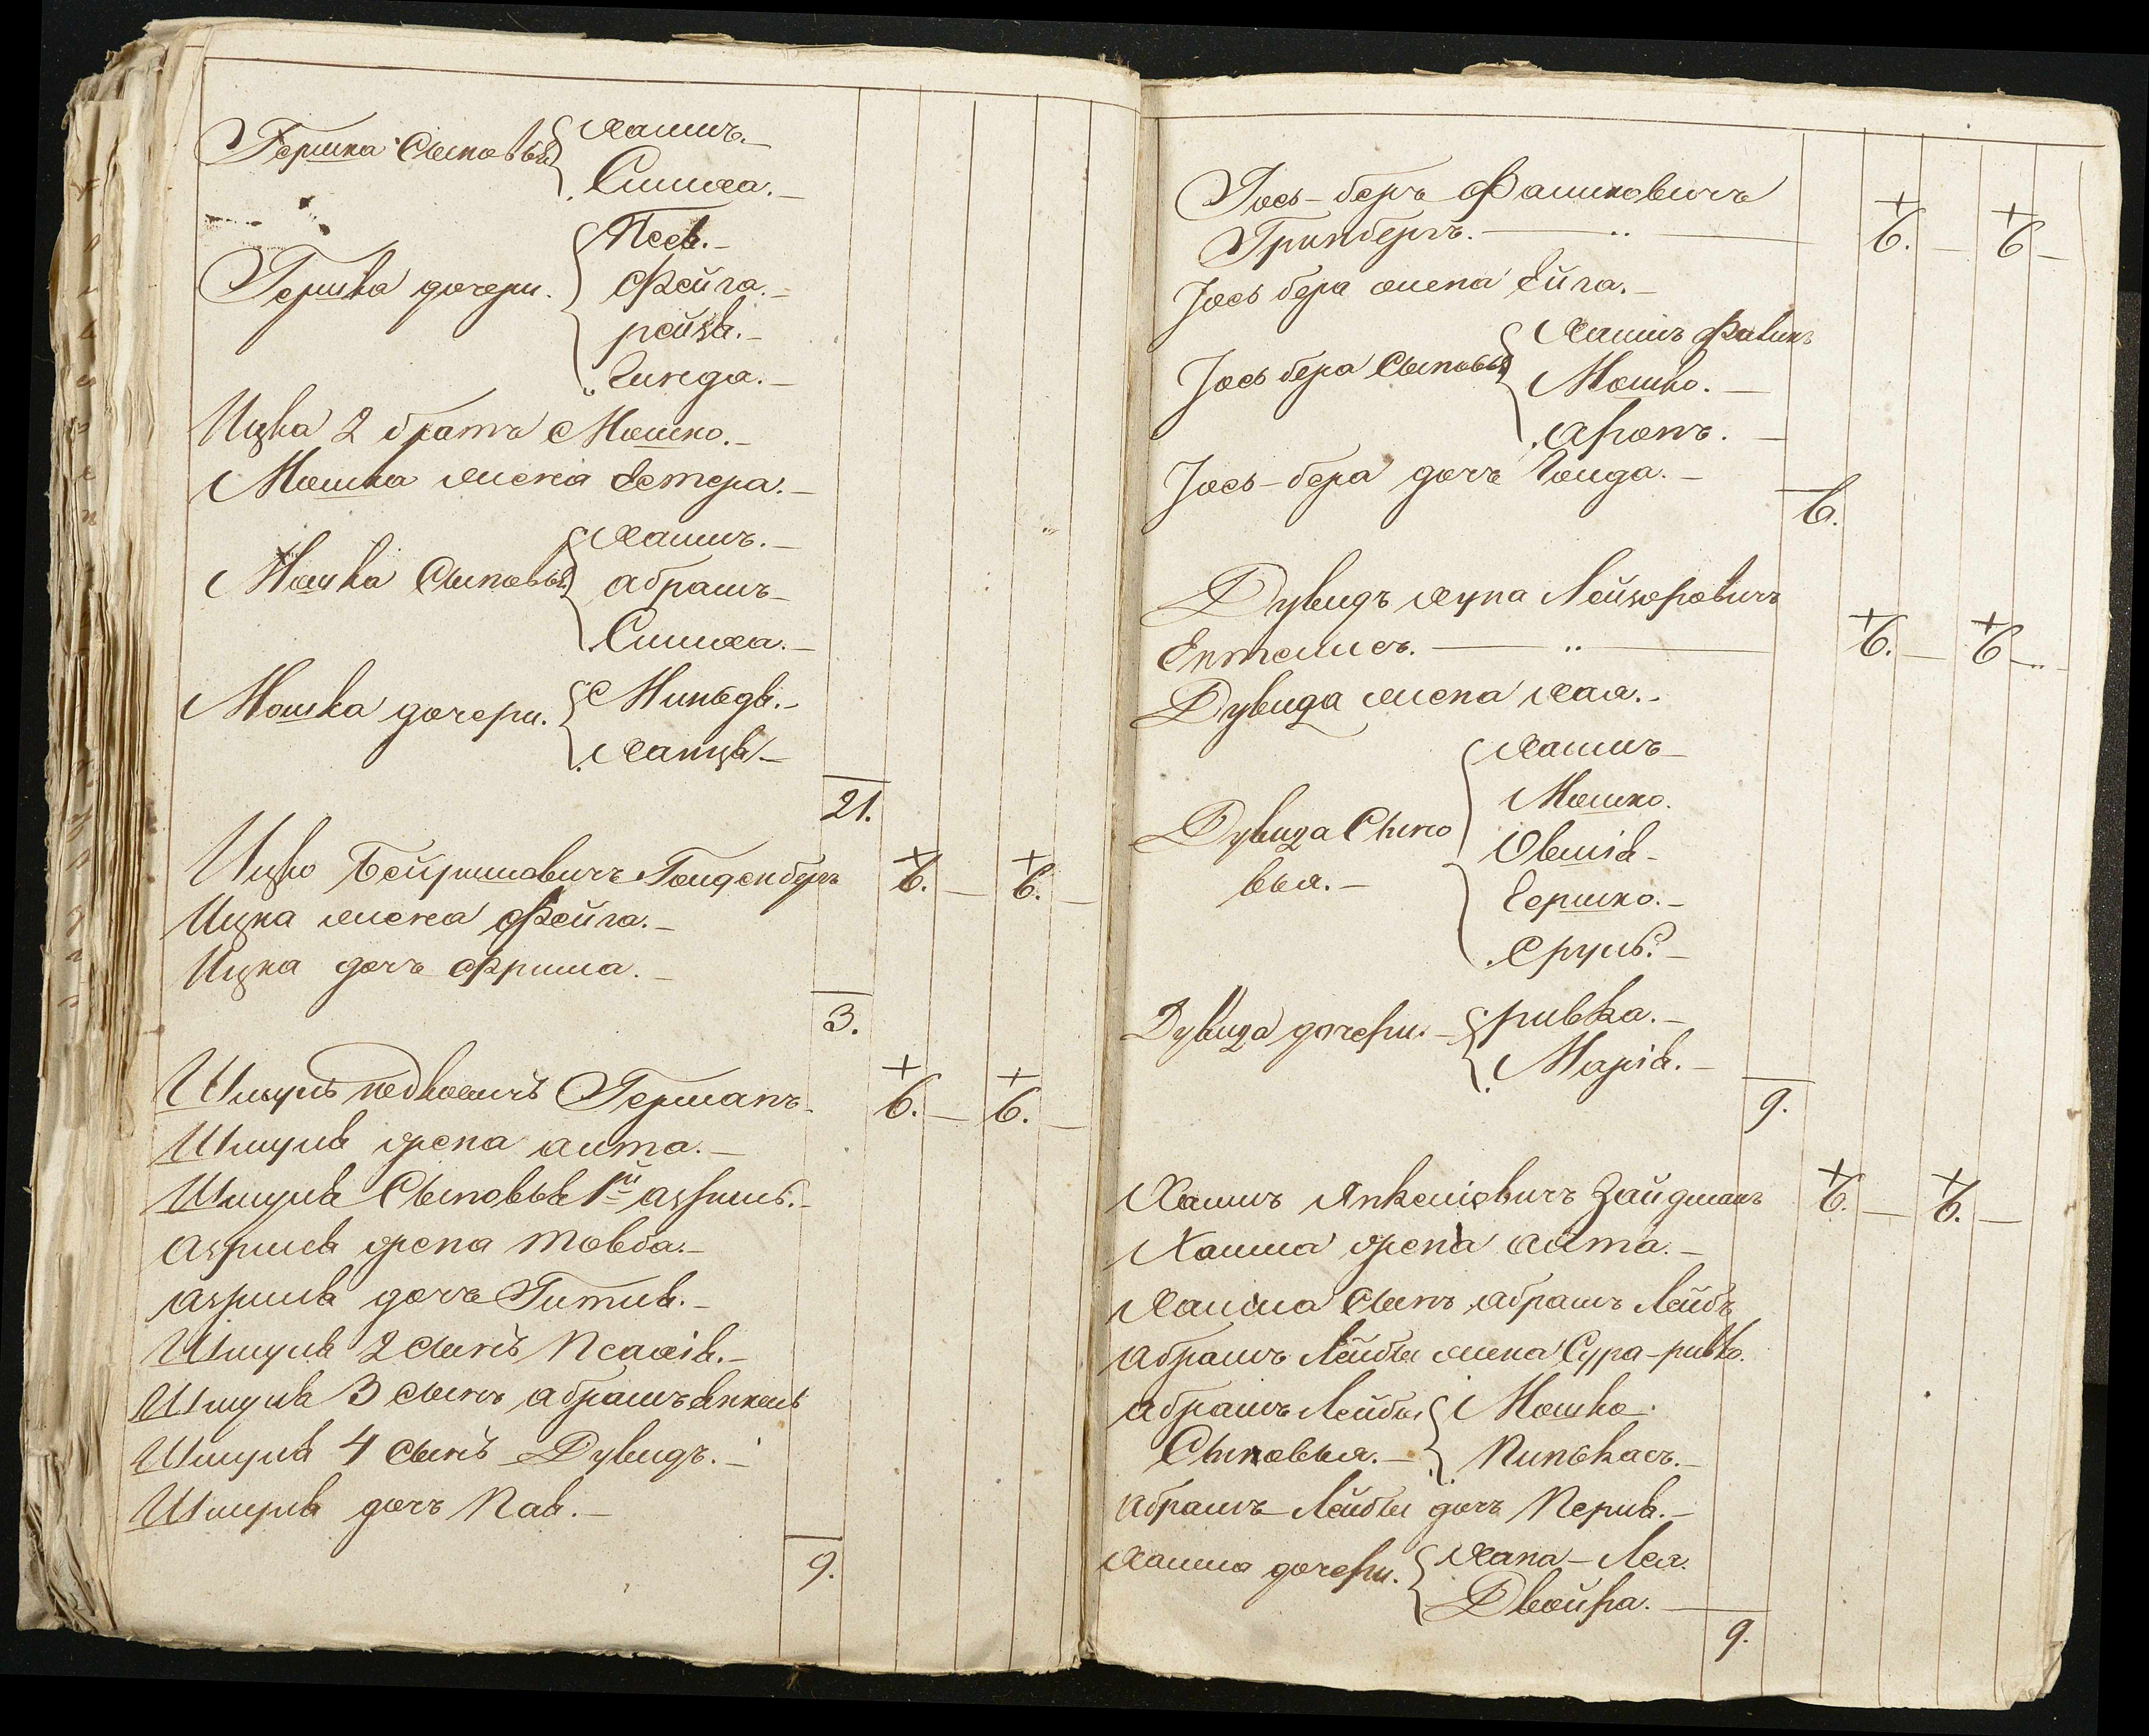 Гершка Сыновья { Хаимъ. –
Симха. –
Гершка дочери. { Песя. –
Фейга. –
рейзя. –
Гинда. –
Ицка 2 братъ Мошко. –
Мошка жена Естера. –
Мошка Сыновья { Хаимъ. –
абрамъ –
Симха. –
Мошка дочери. { Миньдя. –
Ханця –
21.
Ицко Бейришовичъ Гольденбергъ + 6. – + 6. –
Ицка жена Фейга. –
Ицка дочь Фрима. –
3.
Шмуль Германъ. + 6. – + 6. –
Шмуля жена алта. –
Шмуля Сыновья 1й азриль. –
азриля жена товба. –
азриля дочь Гитля. –
Шмуля 2 сынъ Псахія. –
Шмуля 3 сынъ абрамъ Янкель
Шмуля 4 сынъ Дувидъ. –
Шмуля дочь Пая. –
9.
Іось-беръ Фашковичъ
Гринбергъ. – + 6. – + 6 –
Іось бера жена Ейга. –
Іось бера Сыновья { Хаимъ Фавикъ
Мошко. –
Аронъ. –
Іось-бера дочь Голда. –
6.
Дувидъ хуна Лейзоровичъ
Ептелисъ. – + 6. – + 6 –
Дувида жена хая. –
Дувида Сыно { Хаимъ –
Мошко.
Овшія –
вья. – Гершко. –
Сруль. –
Дувида дочери. – { ривка. –
Марія. –
9.
Хаимъ Янкеліовичъ Зайдманъ + 6. – + 6. –
Хаима жена алта. –
Хаима Сынъ абрамъ Лейбъ
абрамъ Лейбы жена Сура-ривка.
абрамъ Лейбы { Мошко.
Сыновья. – Пинькасъ. –
абрамъ Лейбы дочь Перля. –
Хаима дочери. { Хана – Лея.
Двойра. –
9.